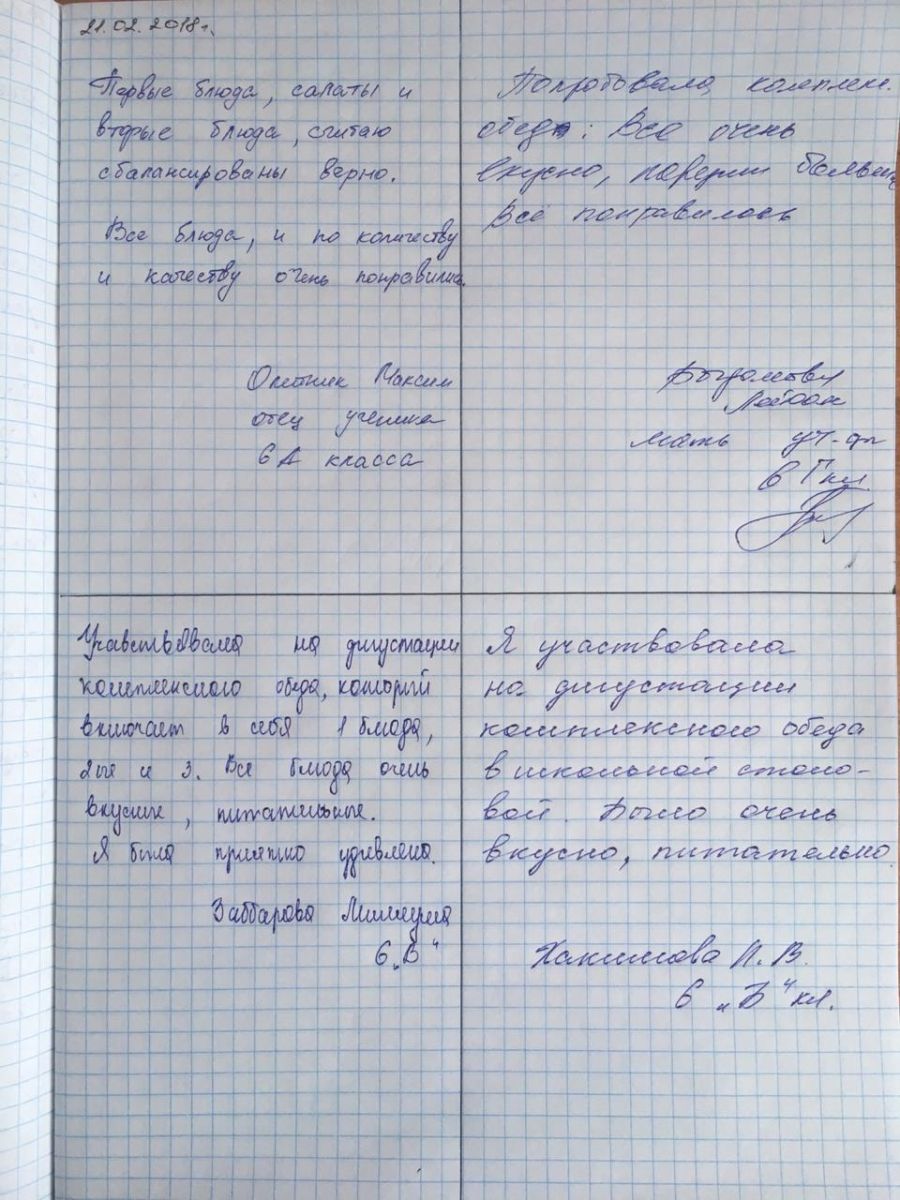 21.02.2018г.
Первые блюда, салаты и
вторые блюда, считаю
сбалансированы верно.
Все блюда, и по количеству
и качеству очень понравились.
Максим
отец ученика
6 А класса
Попробовала комплекс.
обед: Все очень
вкусно, порции большие
Всё понравилось
мать уч-ся
6 Г кл.
Учавствовала на дигустации
комплексного обеда, который
включает в себя 1 блюда,
2ые и 3. Все блюда очень
вкусные, питательные.
Я была приятно удивлена.
Заббарова
6 „В“
Я участвовала
на дигустации
комплексного обеда
в школьной столо-
вой. Было очень
вкусно, питательно.
Хакимова Л. В.
6 „Б“ кл.